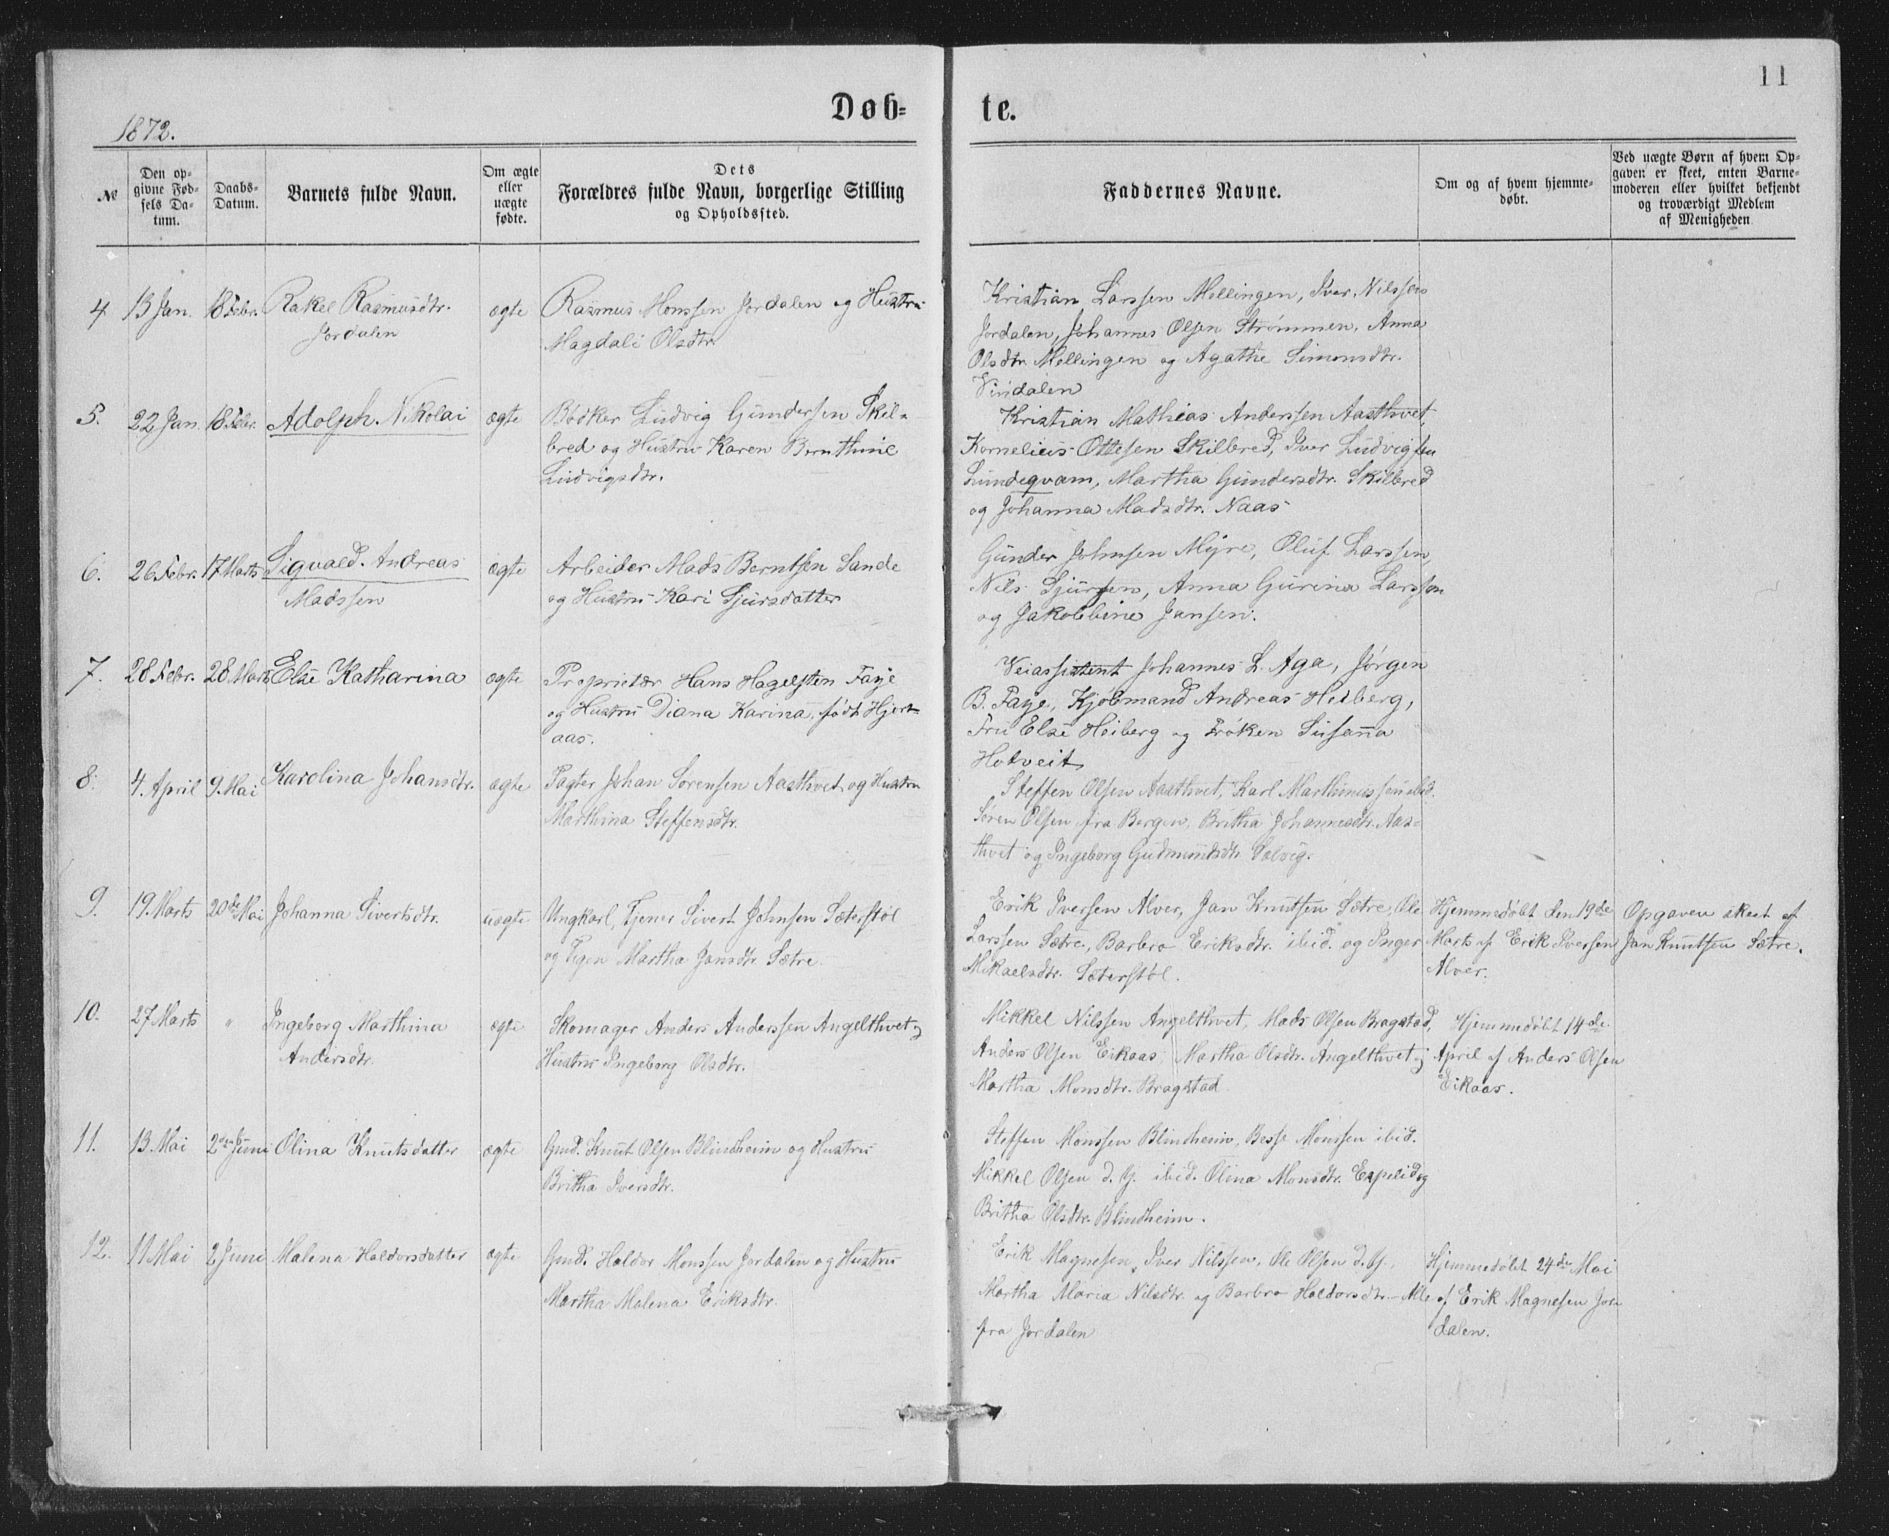 11
Døb-
te.
1872.
№
Den op-
givne Fød-
sels Da-
tum.
Daabs-
Datum.
Barnets fulde Navn.
Om ægte
eller
uægte
fødte.
Dets
Forældres fulde Navn, borgerlige Stilling
og Opholdssted.
Faddernes Navne.
Om og af hvem hjemme-
døbt.
Ved uægte Børn af hvem Op-
gaven er skeet, enten Barne-
moderen eller hvilket bekjendt
og troværdigt Medlem
af Menigheden
4 13 Jan. 18 Febr. Rakel Rasmusdtr. ægte Rasmus Monssen Jordalen og Hustru
Jordalen Magdali Olsdtr.
Kristian Larssen Mollingen, Iver Nilssen
Jordalen, Johannes Olsen Strømmen, Anna
Olsdtr. Mollingen og Agathe Simonsdtr.
Vindalen
5. 22 Jan. 18 Febr. Adolph Nikolai ægte Bødker Ludvig Gundersen Skil-
bred og Hustru Karen Bernthine
Ludvigsdtr.
Kristian Mathias Anderssen Aasthvet,
Kornelius Ottesen Skilbred, Iver Ludvigsen
Lundeqvam, Martha Gundersdtr. Skilbred
og Johanna Madsdtr. Naas
6. 26 Febr. 17 Marts Sigvald Andreas ægte Arbeider Mads Berntsen Sande
Madssen og Hustru Kari Sjursdatter
Gunder Johnsen Myre, Oluf Larssen,
Nils Sjursen, Anna Gurina Larssen
og Jakobbine Jansen.
7. 28 Febr. 28 Marts Else Katharina ægte Proprietær Hans Hagelsten Faye
og Hustru Diana Karina, født Hjort-
aas.
Veiassistent Johannes L. Aga, Jørgen
B. Faye, Kjøbmand Andreas Heiberg,
Fru Else Heiberg og Frøken Susanna
Hotveit
8. 4. April 9. Mai Karolina Johansdtr. ægte Pagter Johan Sørensen Aasthvet og Hustru
Marthina Steffensdtr.
Steffen Olsen Aasthvet, Karl Marthinussen ibid.
Søren Olsen fra Bergen, Britha Johannesdtr. Aas-
thvet og Ingeborg Gudmundsdtr. Solvig.
9. 19. Marts 20de Mai Johanna Sivertsdtr. uægte Ungkarl, Tjener Sivert Johnsen Sæterstøl
og Pigen Martha Jansdtr. Sætre.
Erik Iversen Alver, Jan Knutsen Sætre, Ole
Larssen Sætre, Barbro Eriksdtr. ibid. og Inger
Mikaelsdtr. Sæterstøl.
Hjemmedøbt den 19de
Marts af Erik Iversen
Alver.
Opgaven skeet af
Jan Knutsen Sætre.
10. 27 Marts " Ingeborg Marthina ægte Skomager Anders Anderssen Angelthvet og
Andersdtr. Hustru Ingeborg Olsdtr.
Mikkel Nilssen Angelthvet, Mads Olsen Bragstad,
Anders Olsen Eikaas, Martha Olsdtr. Angelthvet og
Martha Monsdtr. Bragstad
Hjemmedøbt 14de
April af Anders Olsen
Eikaas.
11. 13. Mai 2den Juni Olina Knutsdatter ægte Gmd. Knut Olsen Blindheim og Hustru
Britha Iversdtr.
Steffen Monssen Blindheim, Besse Monssen ibid.
Mikkel Olsen d. y. ibid. Olina Monsdtr. Espelid og
Britha Olsdtr. Blindheim.
12. 11. Mai 2 Juni Malena Haldorsdatter ægte Gmd. Haldor Monssen Jordalen og Hustru
Martha Malena Eriksdtr.
Erik Magnesen, Iver Nilssen, Ole Olsen d. y.,
Martha Maria Nilsdtr. og Barbro Haldorsdtr. - Alle
fra Jordalen
Hjemmedøbt 24de Mai
af Erik Magnesen Jor-
dalen.